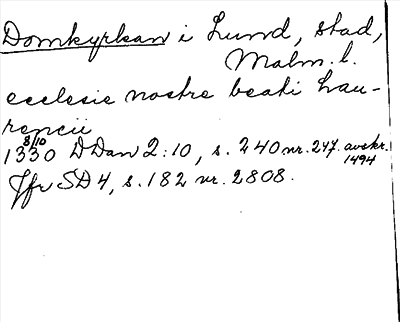 Domkyrkan i Lund, stad,
Malm. l.
ecclesie nostre beati Lau-
rencii
1330 8/10 DDan 2:10, s. 240 nr. 247. avskr. 1494
Jfr SD 4, s. 182 nr. 2808.